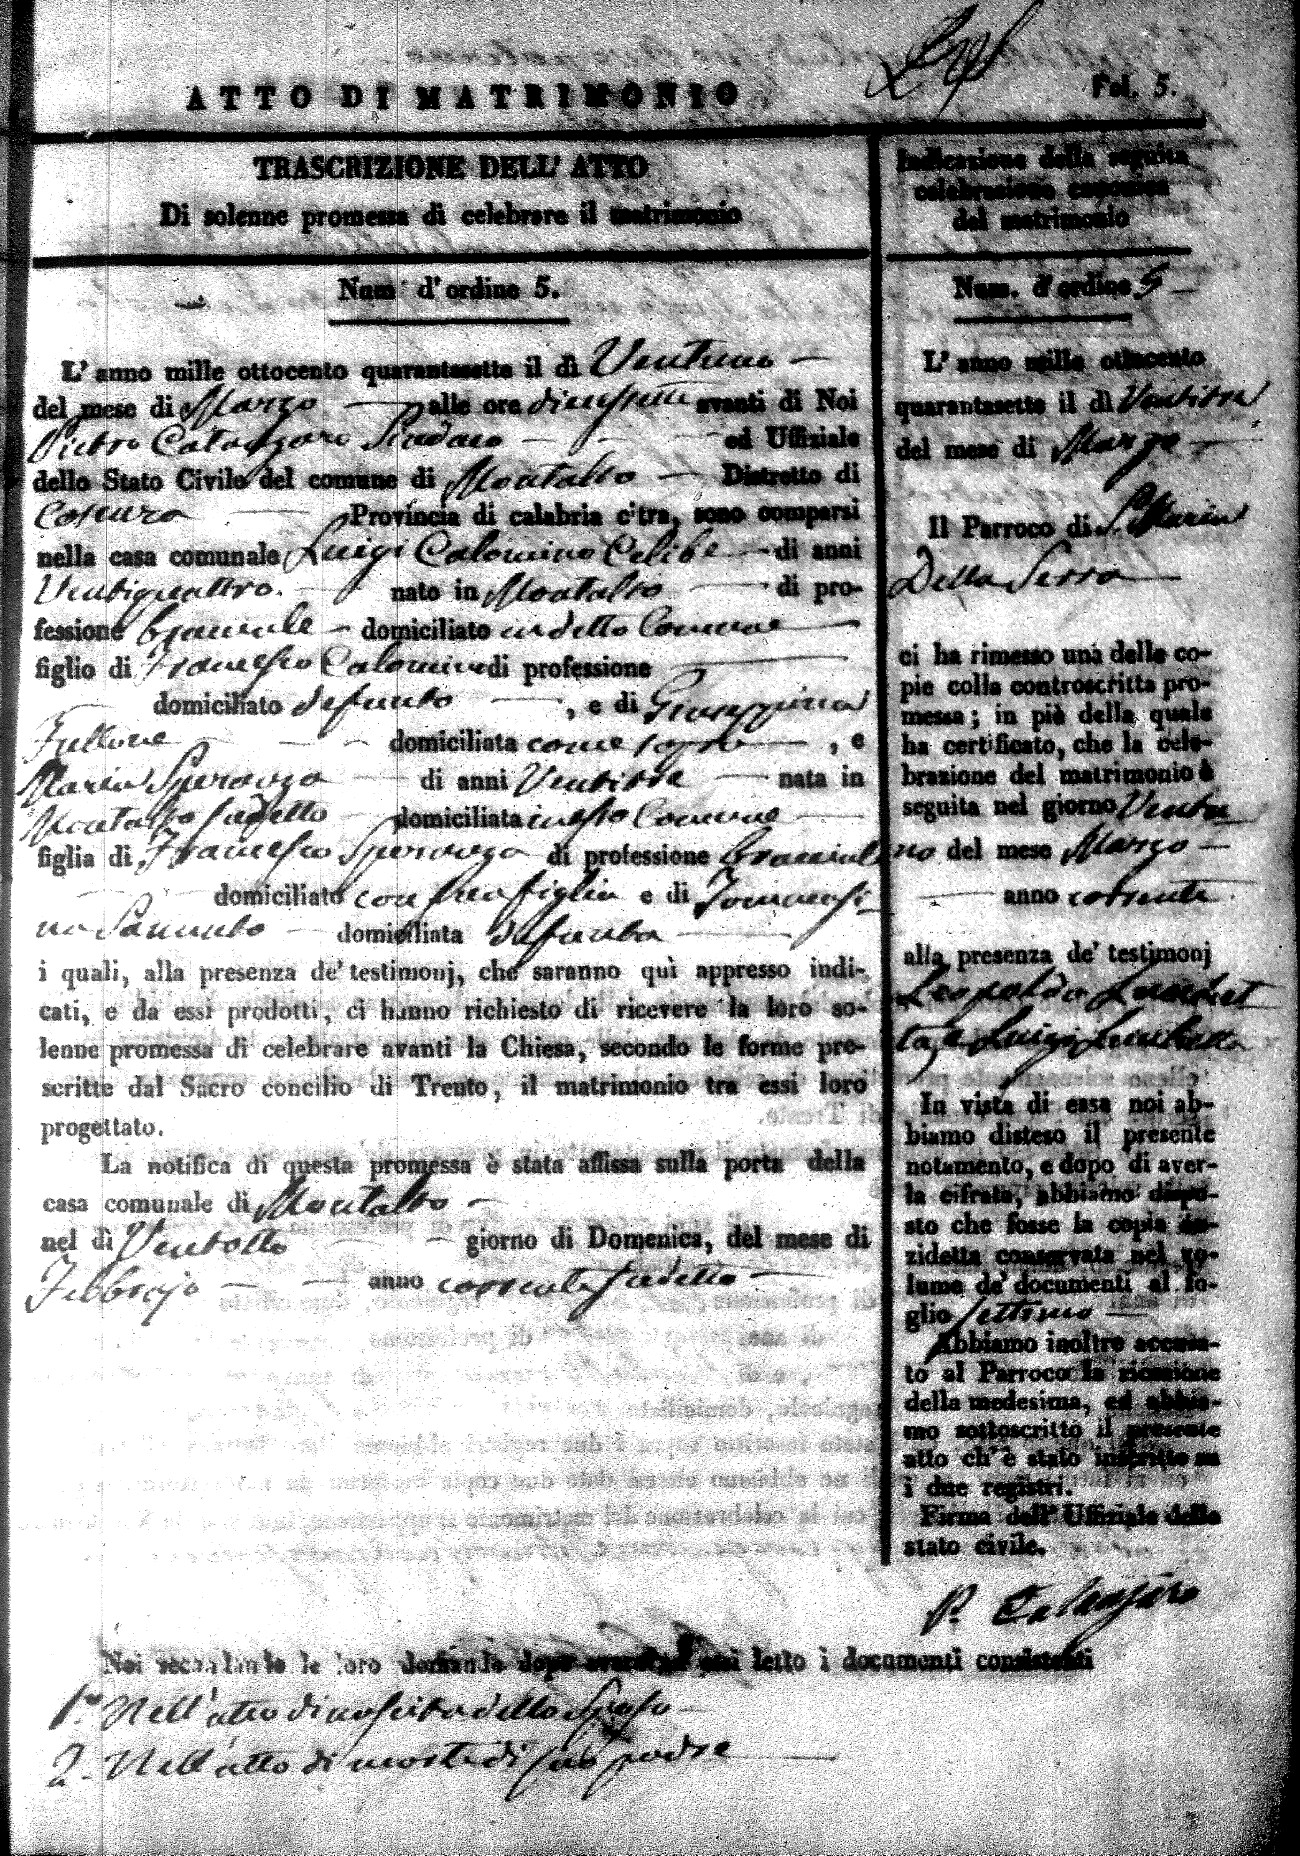 Fol. 5.
ATTO DI MATRIMONIO
TRASCRIZIONE DELL' ATTO
Di solenne promessa di celebrare il matrimonio
Num. d' ordine 5.
L' anno mille ottocento quarantasette il dì Ventuno
del mese di Marzo alle ore diciassette avanti di Noi
Pietro Catanzaro Sindaco ed Uffiziale
dello Stato Civile del comune di Montalto Distretto di
Cosenza Provincia di calabria c'tra, sono comparsi
nella casa comunale Luigi Calomino Celibe di anni
Ventiquattro nato in Montalto di pro-
fessione bracciale domiciliato in detto Comune
figlio di Francesco Calomino di professione
domiciliato defunto , e di Giuseppina
Fullone domiciliata come sopra , e
Maria Speranza di anni Ventitre nata in
Montalto sudetto domiciliata in esso Comune
figlia di Francesco Speranza di professione bracciale
domiciliato con sua figlia e di Tommasi-
na domiciliata defunta
i quali, alla presenza de' testimonj, che saranno quì appresso indi-
cati, e da essi prodotti, ci hanno richiesto di ricevere la loro so-
lenne promessa di celebrare avanti la Chiesa, secondo le forme pre-
scritte dal Sacro concilio di Trento, il matrimonio tra essi loro
progettato.
La notifica di questa promessa è stata affissa sulla porta della
casa comunale di Montalto
nel dì Ventotto giorno di Domenica, del mese di
Febbrajo anno corrente sudetto
Indicazione della seguita
celebrazione canonica
del matrimonio
Num. d' ordine 5
L' anno mille ottocento
quarantasette il dì Ventitre
del mese di Marzo
Il Parroco di S. Maria
Della Serra
ci ha rimesso una delle co-
pie colla controscritta pro-
messa; in piè della quale
ha certificato, che la cele-
brazione del matrimonio è
seguita nel giorno Ventu
no del mese Marzo
anno corrente
alla presenza de' testimonj
Leopoldo Lanchet
ta, e Luigi Lanchetta
In vista di essa noi ab-
biamo disteso il presente
notamento, e dopo di aver-
la cifrata, abbiamo dispo-
sto che fosse la copia an-
zidetta conservata nel vo-
lume de' documenti al fo-
glio settimo
Abbiamo inoltre accusa-
to al Parroco la ricezione
della medesima, ed abbia-
mo sottoscritto il presente
atto ch' è stato inscritto su
i due registri.
Firma dell' Uffiziale dello
stato civile.
P. Catanzaro
Noi secondando le loro domande dopo aver ad essi letto i documenti consistenti
1.º Nell'atto di nascita dello Sposo
2.º Nell'atto di morte di suo padre